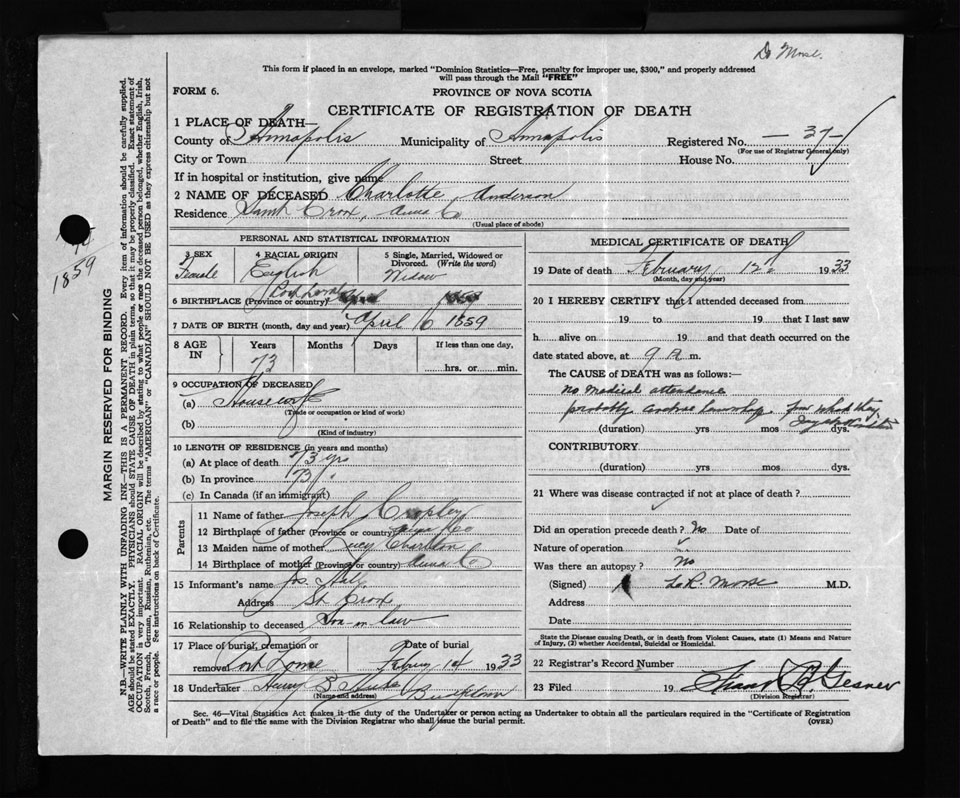 Dr Morse.
This form if placed in an envelope, marked "Dominion Statistics—Free, penalty for improper use, $300," and properly addressed
will pass through the Mail "FREE"
FORM 6.
PROVINCE OF NOVA SCOTIA
CERTIFICATE OF REGISTRATION OF DEATH
1 PLACE OF DEATH—
County of Annapolis Municipality of Annapolis Registered No. —37—
(For use of Registrar General only)
City or Town Street House No.
If in hospital or institution, give name
2 NAME OF DECEASED Charlotte Anderson
Residence Saint Croix, Anna Co
(Usual place of abode)
PERSONAL AND STATISTICAL INFORMATION
3 SEX Female
4 RACIAL ORIGIN English
5 Single, Married, Widowed or Divorced. (Write the word) Widow
6 BIRTHPLACE (Province or country) Port Lorne
7 DATE OF BIRTH (month, day and year) April 6 1859
8 AGE IN Years 73 Months Days If less than one day, hrs. or min.
9 OCCUPATION OF DECEASED
(a) Housewife
(Trade or occupation or kind of work)
(b)
(Kind of industry)
10 LENGTH OF RESIDENCE (in years and months)
(a) At place of death 73 yrs
(b) In province 73 "
(c) In Canada (if an immigrant)
Parents
11 Name of father Joseph
12 Birthplace of father (Province or country)
13 Maiden name of mother Lucy Charlton
14 Birthplace of mother (Province or country) Anna Co
15 Informant's name Jos. Hall
Address St Croix
16 Relationship to deceased Son-in law
17 Place of burial, cremation or removal Port Lorne Date of burial 1933
18 Undertaker Bridgetown
(Name and address)
MEDICAL CERTIFICATE OF DEATH
19 Date of death February 12 1933
(Month, day and year)
20 I HEREBY CERTIFY that I attended deceased from
19 to 19 that I last saw
h alive on 19 and that death occurred on the
date stated above, at 9 a m.
The CAUSE of DEATH was as follows:—
no medical attendance
probably from what they
(duration) yrs mos dys.
CONTRIBUTORY
(duration) yrs mos dys.
21 Where was disease contracted if not at place of death?
Did an operation precede death? No Date of
Nature of operation
Was there an autopsy? No
(Signed) L.R. Morse M.D.
Address
Date
State the Disease causing Death, or in death from Violent Causes, state (1) Means and Nature
of Injury, (2) whether Accidental, Suicidal or Homicidal.
22 Registrar's Record Number
23 Filed 19 Gesner
(Division Registrar)
Sec. 46—Vital Statistics Act makes it the duty of the Undertaker or person acting as Undertaker to obtain all the particulars required in the "Certificate of Registration
of Death" and to file the same with the Division Registrar who shall issue the burial permit.
(OVER)
1859
MARGIN RESERVED FOR BINDING
N.B.—WRITE PLAINLY WITH UNFADING INK—THIS IS A PERMANENT RECORD. Every item of information should be carefully supplied.
AGE should be stated EXACTLY. PHYSICIANS should STATE CAUSE OF DEATH in plain terms, so that it may be properly classified. Exact statement of
OCCUPATION is very important. RACIAL ORIGIN will be described by stating to what people or race the deceased person belonged, whether English, Irish,
Scotch, French, German, Russian, Ruthenian, etc. The terms "AMERICAN" or "CANADIAN" SHOULD NOT BE USED as they express citizenship but not
a race or people. See instructions on back of Certificate.